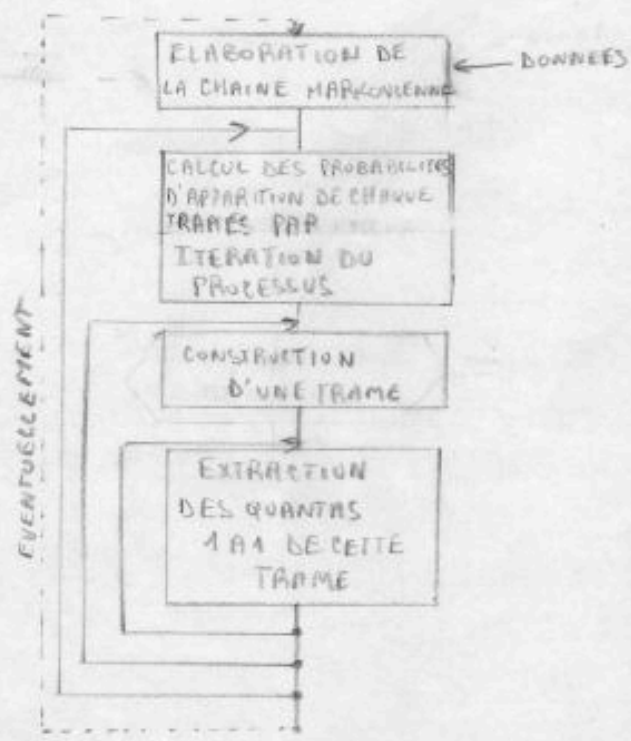 ELABORATION DE
LA CHAINE MARKOVIENNE
DONNEES
CALCUL DES PROBABILITES
D'APPARITION DE CHAQUE
TRAMES PAR
ITERATION DU
PROCESSUS
CONSTRUCTION
D'UNE TRAME
EXTRACTION
DES QUANTAS
1 A 1 DE CETTE
TRAME
EVENTUELLEMENT